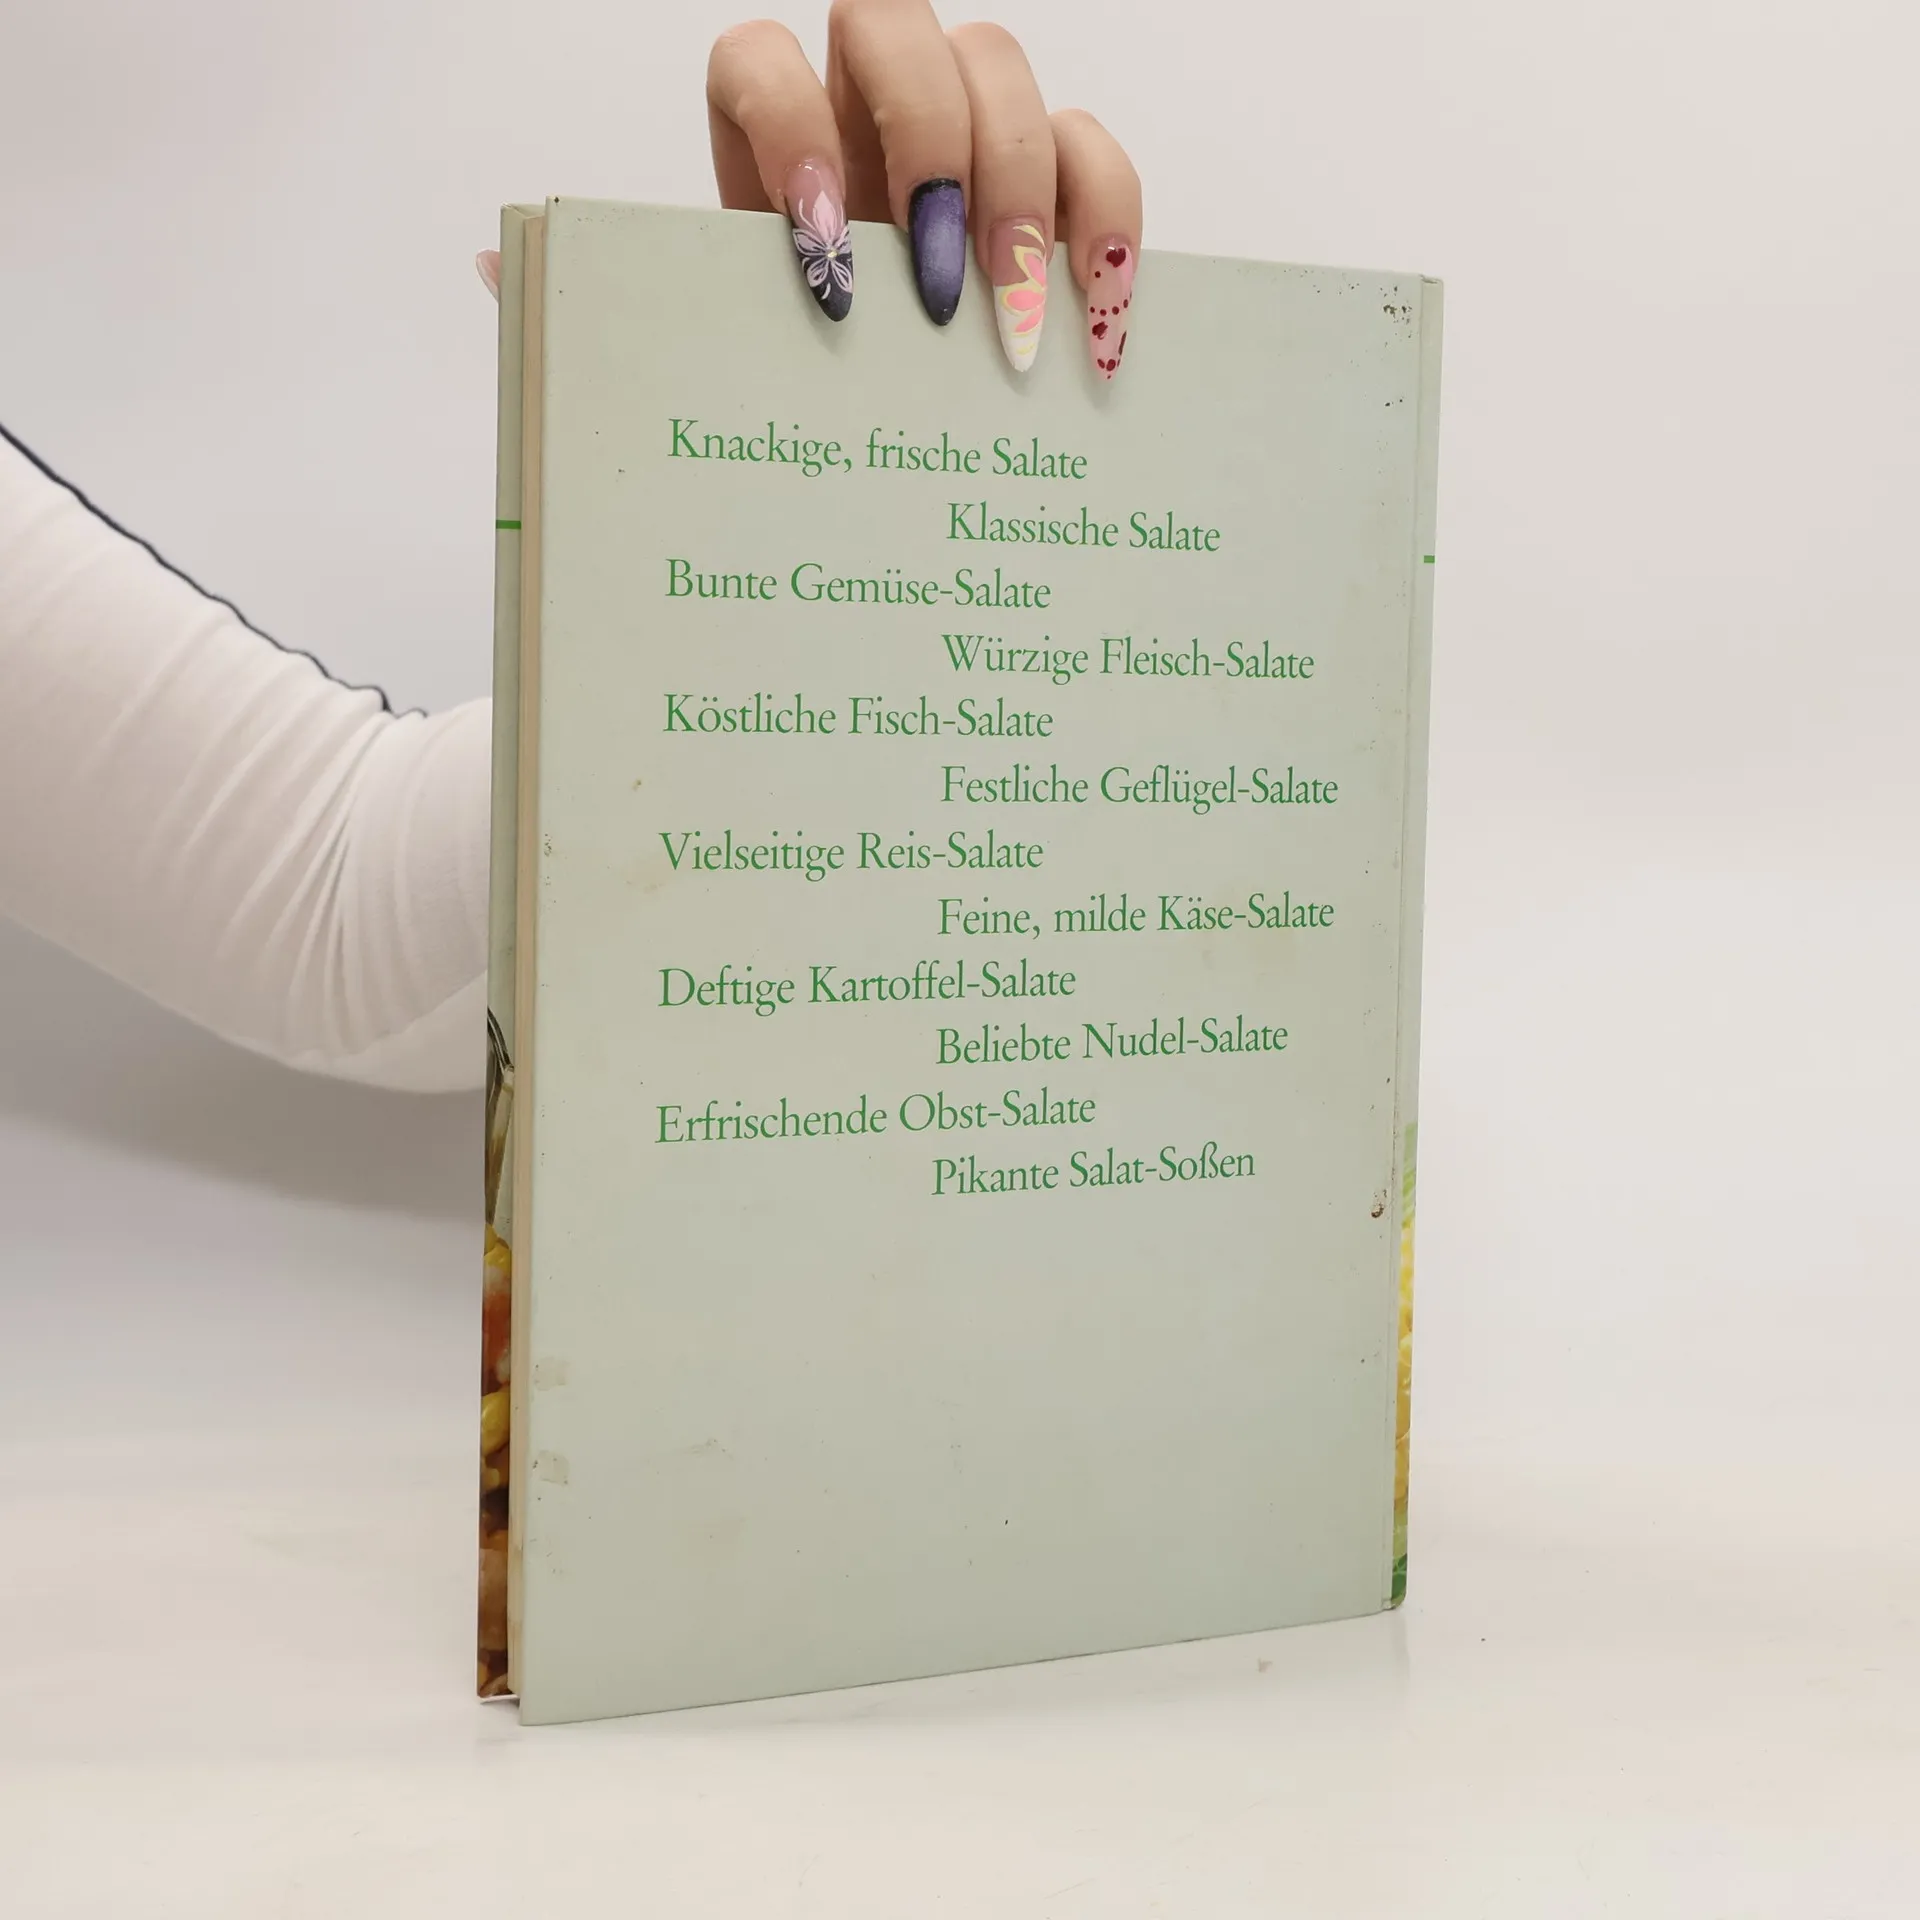 Knackige, frische Salate
Klassische Salate
Bunte Gemüse-Salate
Würzige Fleisch-Salate
Köstliche Fisch-Salate
Festliche Geflügel-Salate
Vielseitige Reis-Salate
Feine, milde Käse-Salate
Deftige Kartoffel-Salate
Beliebte Nudel-Salate
Erfrischende Obst-Salate
Pikante Salat-Soßen